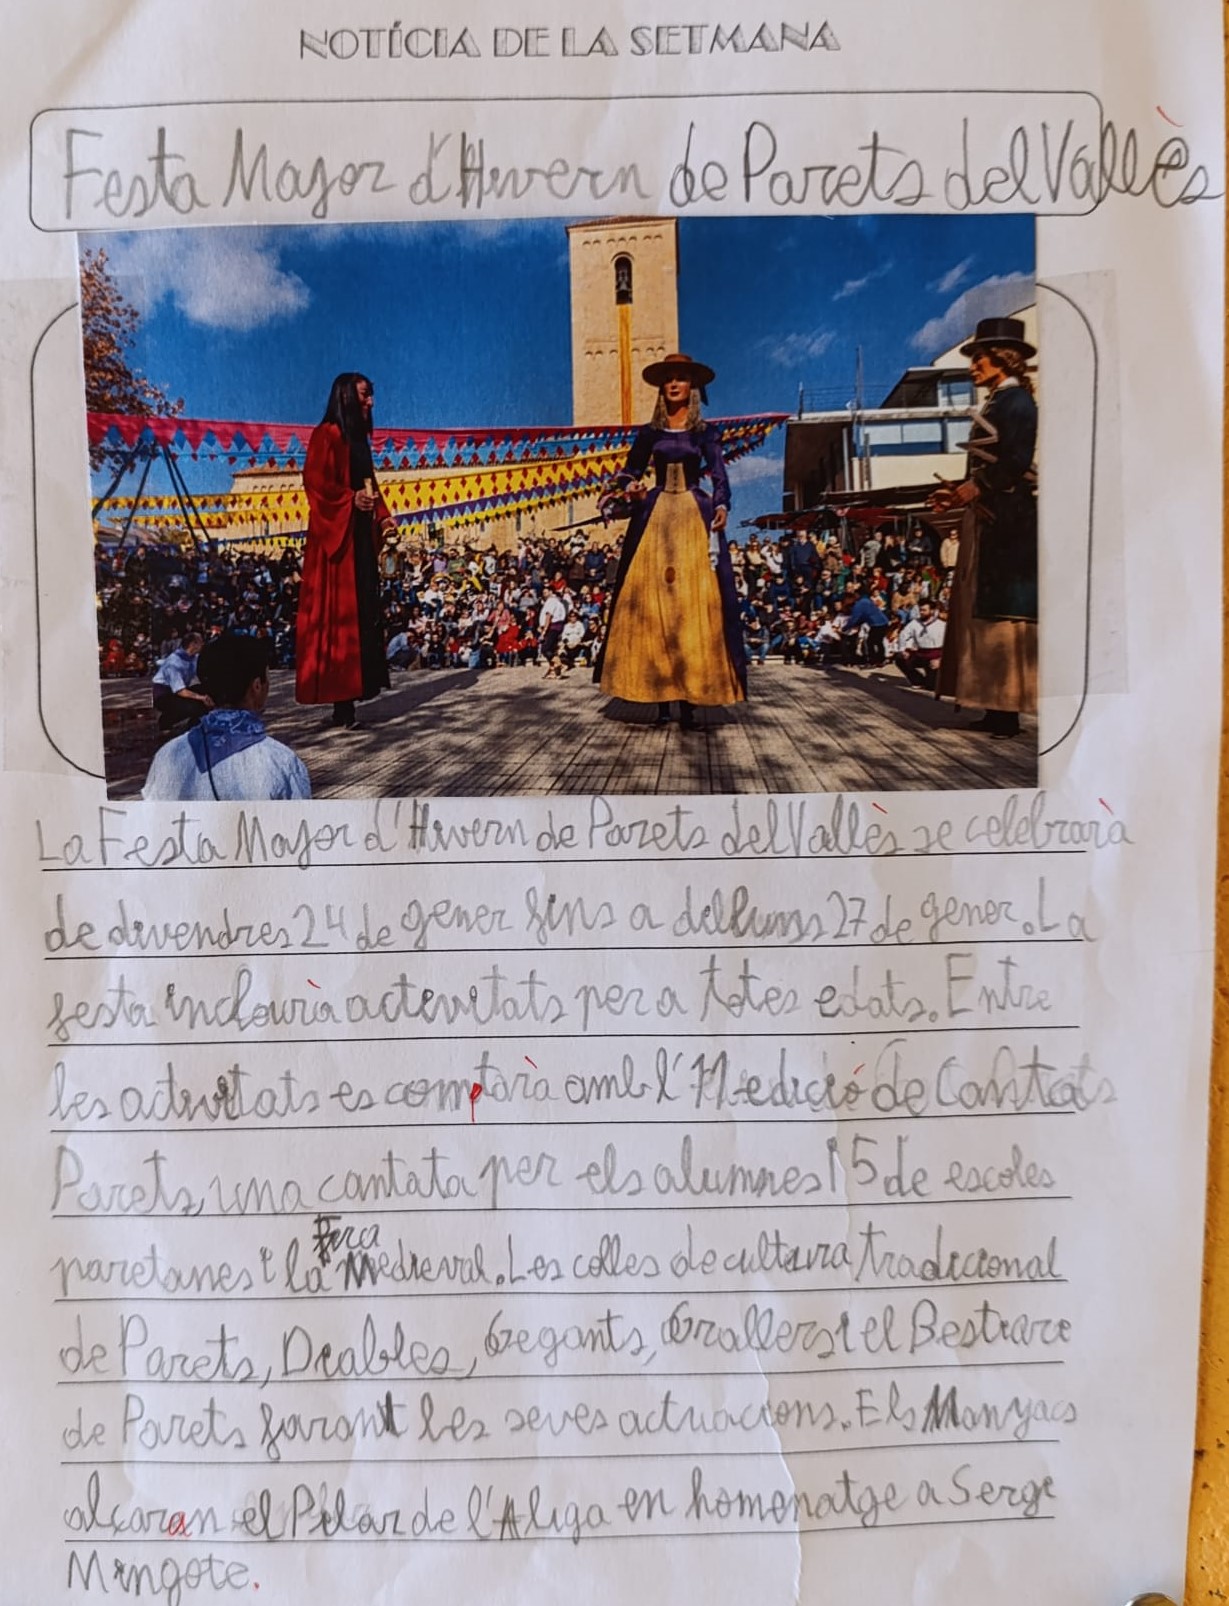 NOTÍCIA DE LA SETMANA
Festa Major d'Hivern de Parets del Vallès
La Festa Major d'Hivern de Parets del Vallès se celebrarà
de divendres 24 de gener fins a dilluns 27 de gener. La
festa inclourà activitats per a totes edats. Entre
les activitats es comptarà amb l'11 edició de Cantata
Parets, una cantata per els alumnes i 5 de escoles
paretanes i la Fira Medieval. Les colles de cultura tradicional
de Parets, Diables, Gegants, Grallers i el Bestiari
de Parets farant les seves actuacions. Els Manyacs
alçaran el Pilar de l'Aliga en homenatge a Sergi
Mingote.